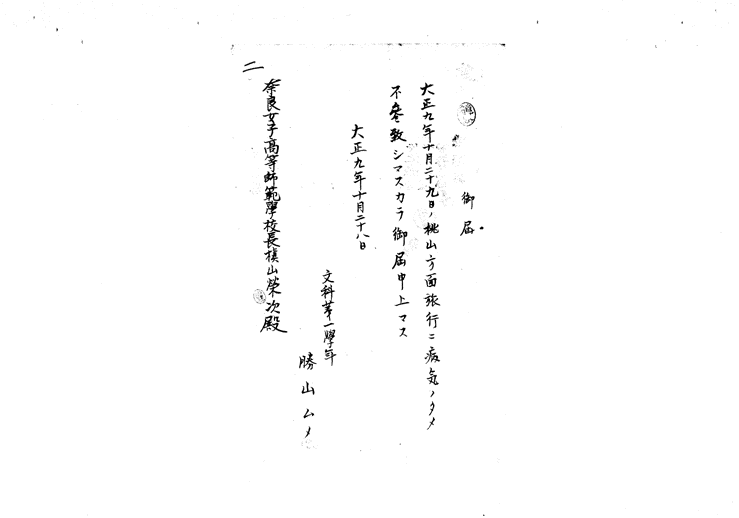 御届
大正九年十月二十九日ノ桃山方面旅行ニ病気ノタメ
不参致シマスカラ御届申上マス
大正九年十月二十八日
文科第一學年
勝山ムメ
奈良女子高等師範學校長槇山榮次殿
二